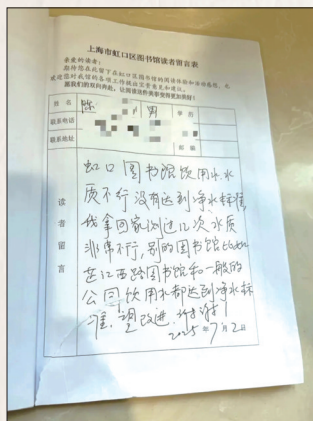 上海市虹口区图书馆读者留言表
亲爱的读者:
期待您在此留下在虹口区图书馆的阅读体验和活动感想,也
欢迎您对我们的各项工作提出宝贵意见和建议。
愿我们的双向奔赴,让阅读这件美事变得更加美好!
姓名 陈 男 学历
联系电话
联系地址 邮编
读者留言
虹口图书馆饮用水水
质不行没有达到净水标准
我拿回家测过几次水质
非常不行,别的图书馆比如
芷江西路图书馆和一般的
公司饮用水都达到净水标
准,望改进,谢谢!
2025年7月2日